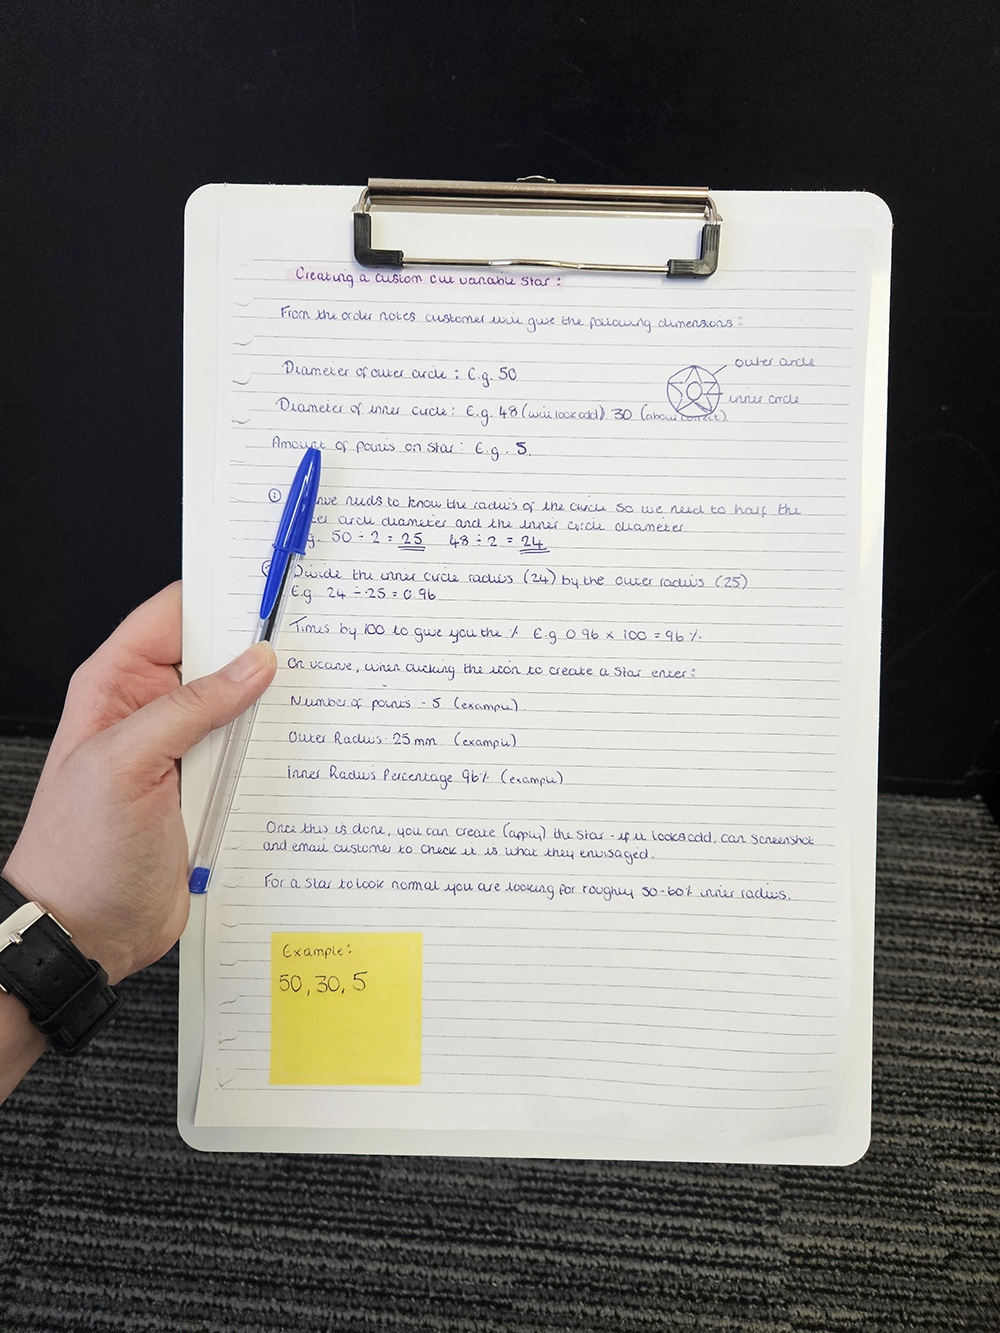 Creating a custom cut variable star:
From the order notes customer will give the following dimensions:
Diameter of outer circle: E.g. 50
outer circle
inner circle
Diameter of inner circle: E.g. 48 (will look odd). 30 (about correct).
Amount of points on star: E.g. 5.
① needs to know the radius of the circle so we need to half the
circle diameter and the inner circle diameter
50 ÷ 2 = 25 48 ÷ 2 = 24
Divide the inner circle radius (24) by the outer radius (25)
E.g 24 ÷ 25 = 0.96
Times by 100 to give you the % E.g 0.96 x 100 = 96%.
On vcarve, when clicking the icon to create a star enter:
Number of points - 5 (example)
Outer Radius - 25mm (example)
Inner Radius Percentage 96% (example)
Once this is done, you can create (apply) the star - if it looks odd, can screenshot
and email customer to check it is what they envisaged.
For a star to look normal you are looking for roughly 50-60% inner radius.
Example:
50, 30, 5